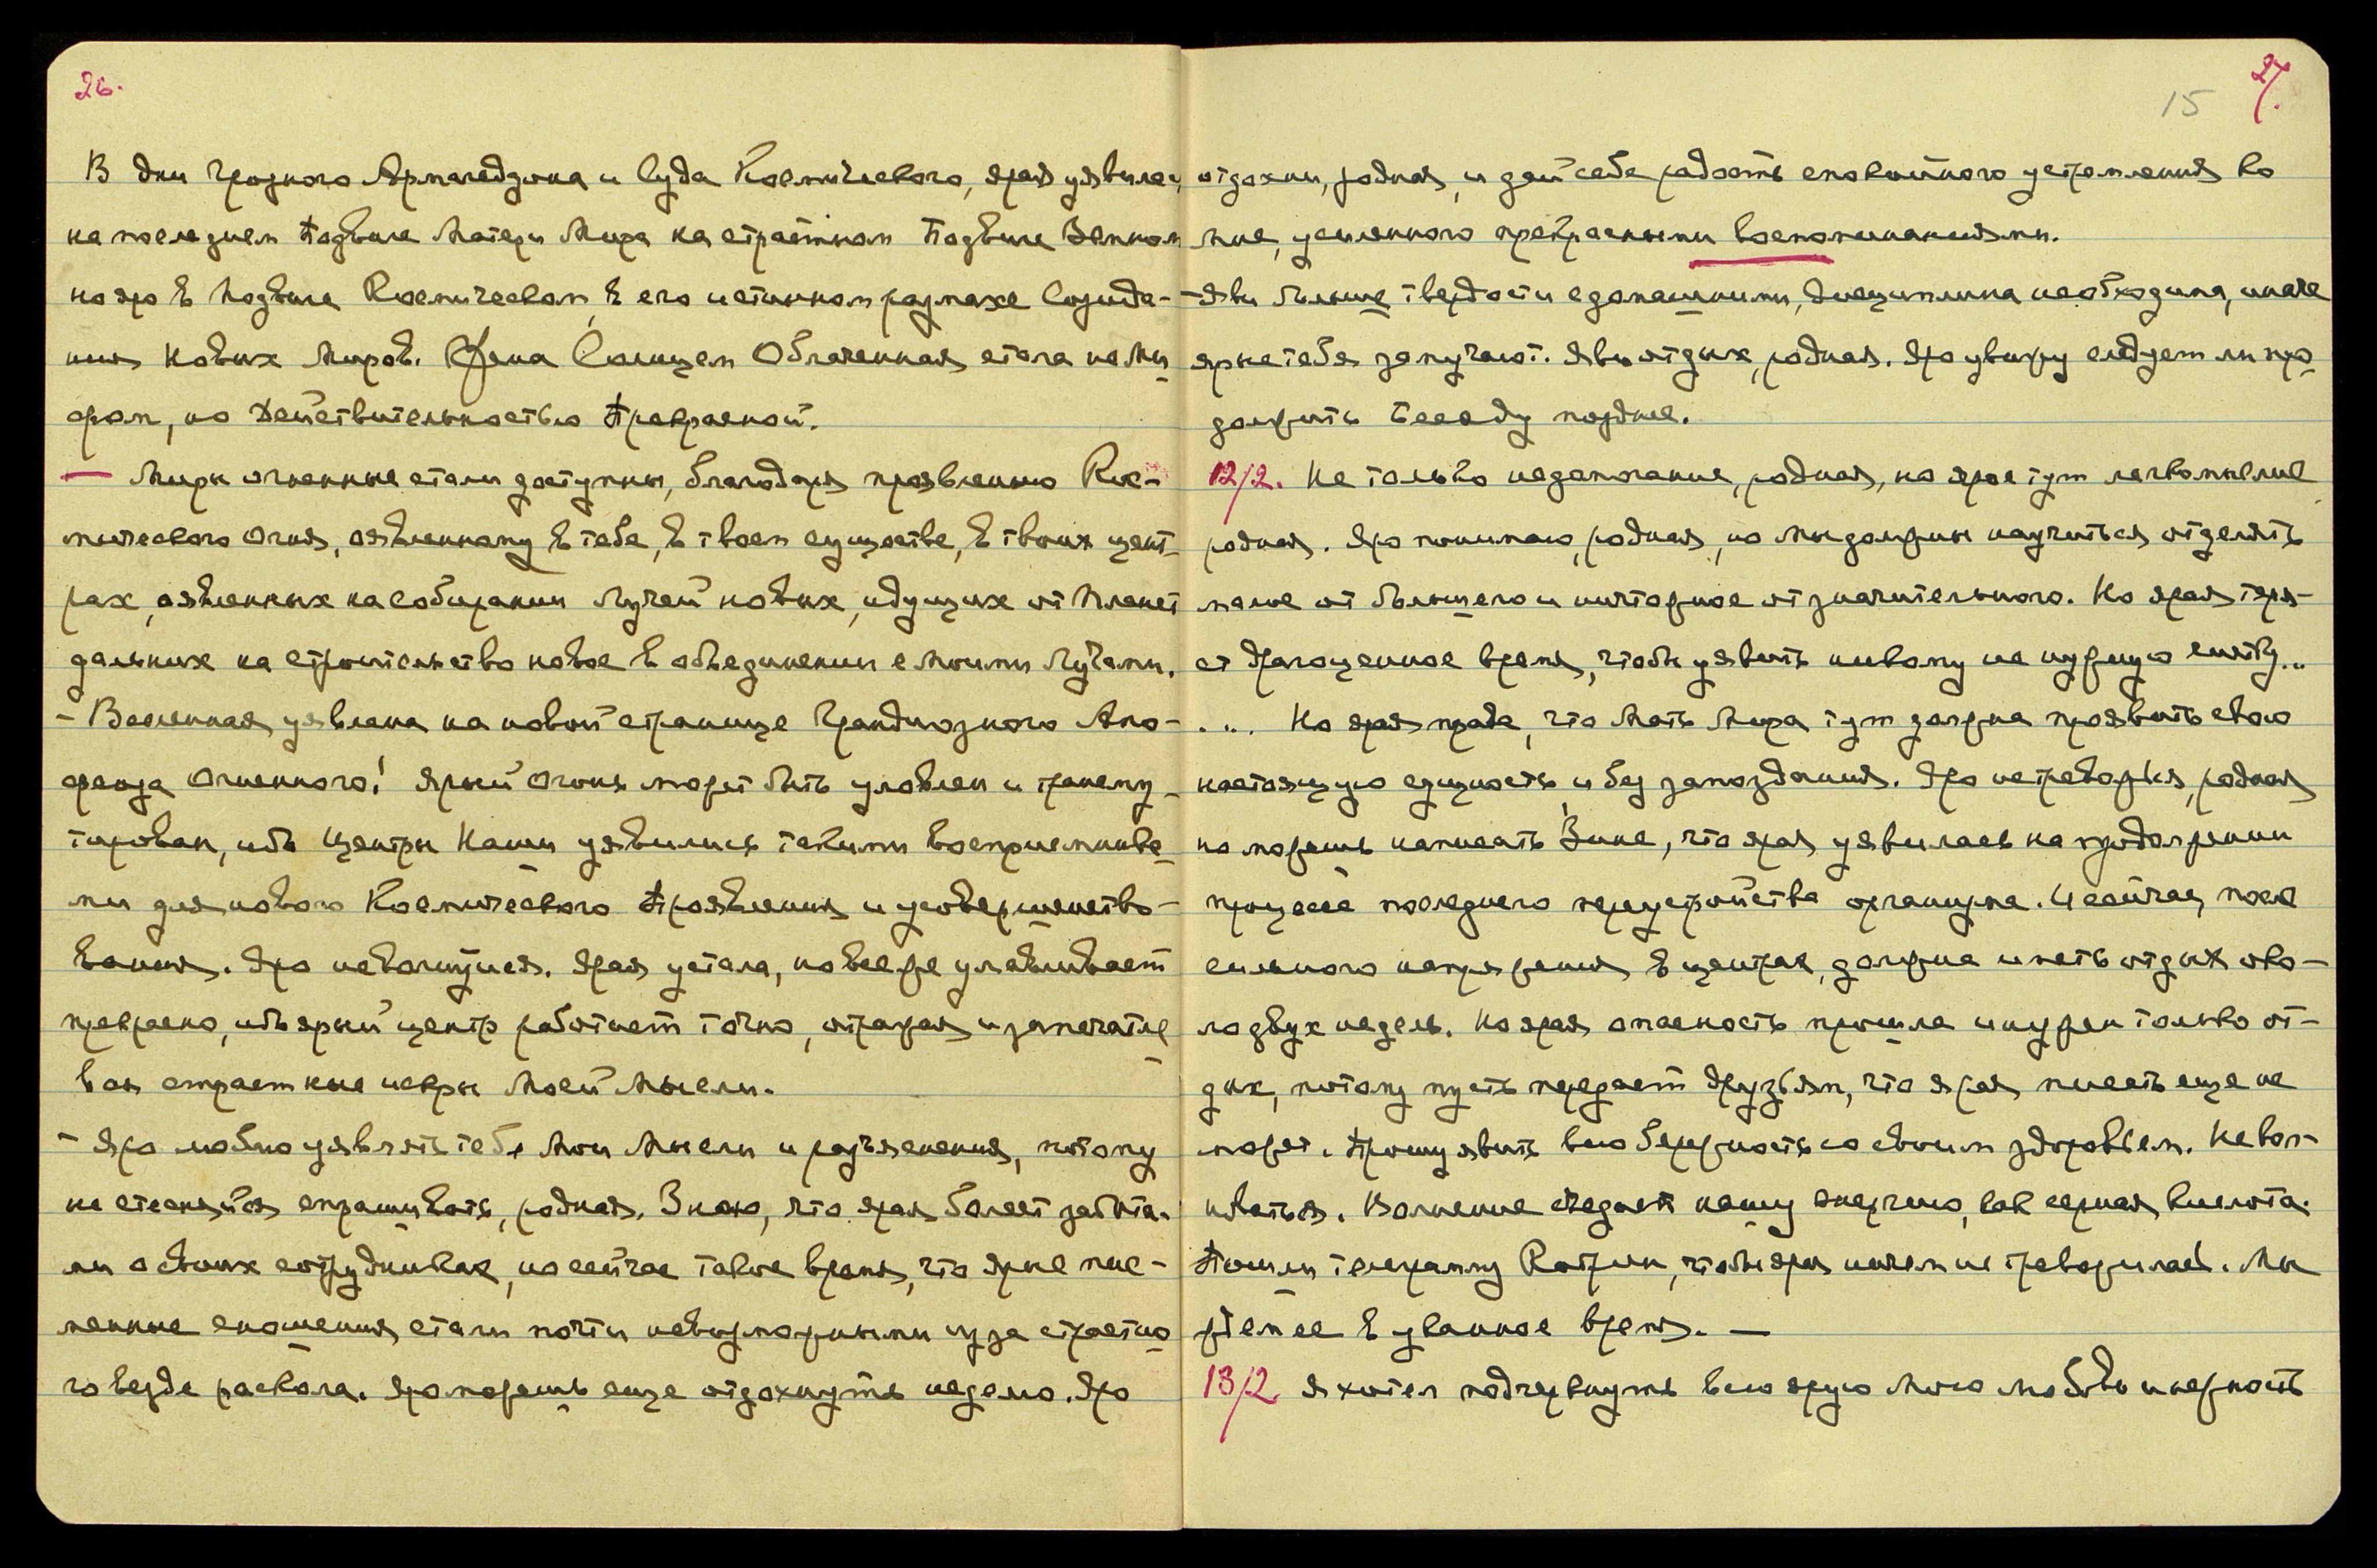 26.
В дни Грозного Армагеддона и Суда Космического, ярая уявилась
на последнем Подвиге Матери Мира на страстном Подвиге Земном
но яро в Подвиге Космическом, в его истинном размахе Созида-
ния Новых Миров. Жена Солнцем Облаченная стала не Ми-
фом, но Действительностью Прекрасной.
— Миры огненные стали доступны, благодаря проявлению Кос-
мического Огня, оявленному в тебе, в твоем существе, в твоих цент-
рах, оявленных на собирании Лучей новых, идущих от Планет
дальних на строительство новое в объединении с моими Лучами.
- Вселенная уявлена на новой странице Грандиозного Апо-
феоза Огненного! Ярый Огонь может быть уловлен и трансму-
тирован, ибо Центры Наши уявились такими восприемника-
ми для нового Космического Проявления и усовершенство-
вания. Яро не волнуйся. Ярая устала, но все же улавливает
прекрасно, ибо ярый центр работает точно, отражая и запечатле-
вая страстные искры Моей Мысли.
- Яро люблю уявлять тебе Мои Мысли и разъяснения, потому
не стесняйся спрашивать, родная. Знаю, что ярая болеет забота-
ми о своих сотрудниках, но сейчас такое время, что ярые пись-
менные сношения стали почти невозможными из за страстно-
го везде раскола. Яро можешь еще отдохнуть неделю. Яро
27.
15
отдохни, родная, и дай себе радость спокойного устремления ко
Мне, усиленного прекрасными воспоминаниями.
- Яви больше твердости с домашними, дисциплина необходима, иначе
ярые тебя замучают. Яви отдых, родная. Яро увижу следует ли про-
должить беседу позднее.
12/2. Не только недомогание, родная, но ярое тут легкомыслие
родная. Яро понимаю, родная, но мы должны научиться отделять
малое от большего и ничтожное от значительного. Но ярая теря-
ет драгоценное время, чтобы уявить никому не нужную ..
... Но ярая права, что Мать Мира тут должна проявить свою
настоящую сущность и без запоздания. Яро не тревожься, родная
но можешь написать Зине, что ярая уявилась на продолжении
процесса последнего переустройства организма. И сейчас, после
сильного напряжения в центрах, должна иметь отдых око-
ло двух недель. Но ярая опасность прошла и нужен только от-
дых, потому пусть передает друзьям, что ярая писать еще не
может. Прошу явить всю бережность со своим здоровьем. Не вол-
новаться. Волнение съедает нашу энергию, как серная кислота.
Пошли телеграмму Катрин, чтобы яра ничем не тревожилась. Мы
ждем ее в указанное время. —
13/2 Я хотел подчеркнуть всю ярую мою любовь и нежность